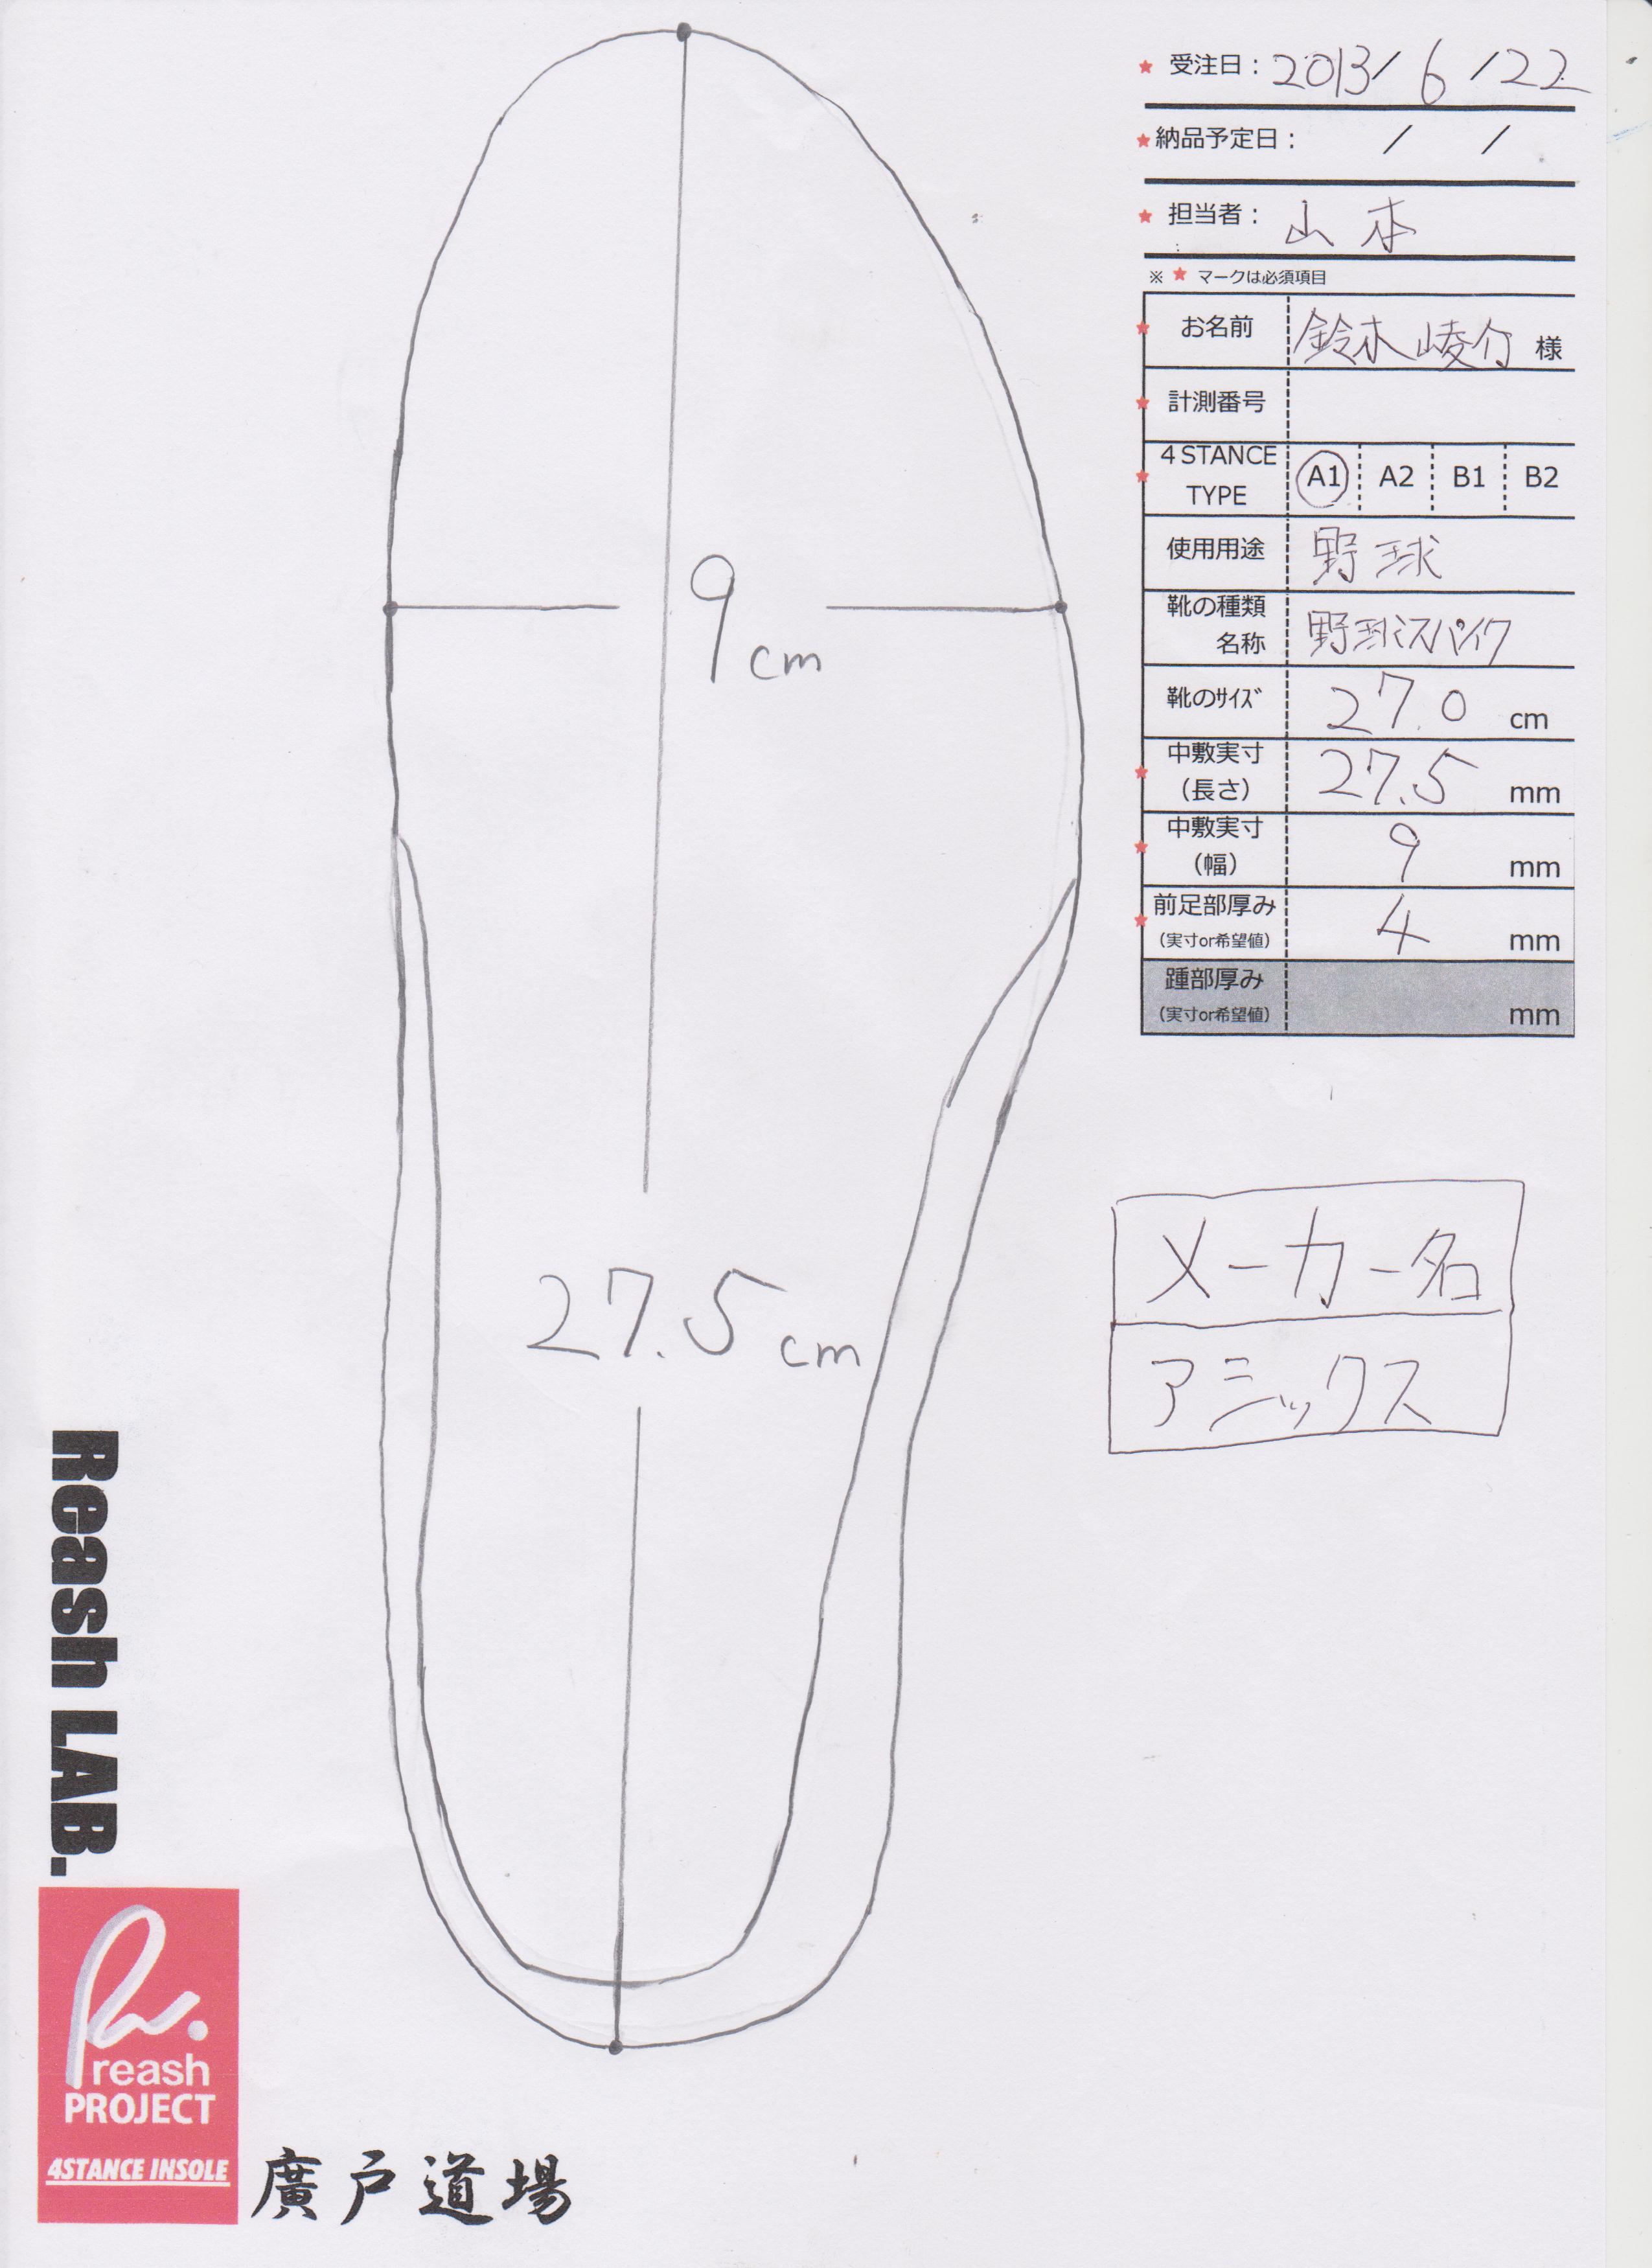 ★ 受注日： 2013/ 6 /22
★ 納品予定日： / /
★ 担当者： 山本
※ ★ マークは必須項目
★ お名前 鈴木崚介 様
★ 計測番号
★ 4 STANCE TYPE A1 A2 B1 B2
使用用途 野球
靴の種類 名称 野球スパイク
靴のｻｲｽﾞ 27.0 cm
★ 中敷実寸 （長さ） 27.5 mm
★ 中敷実寸 （幅） 9 mm
★ 前足部厚み （実寸or希望値） 4 mm
踵部厚み （実寸or希望値） mm
9 cm
27.5 cm
メーカー名
アシックス
Reash LAB.
R.
reash
PROJECT
4STANCE INSOLE
廣戸道場